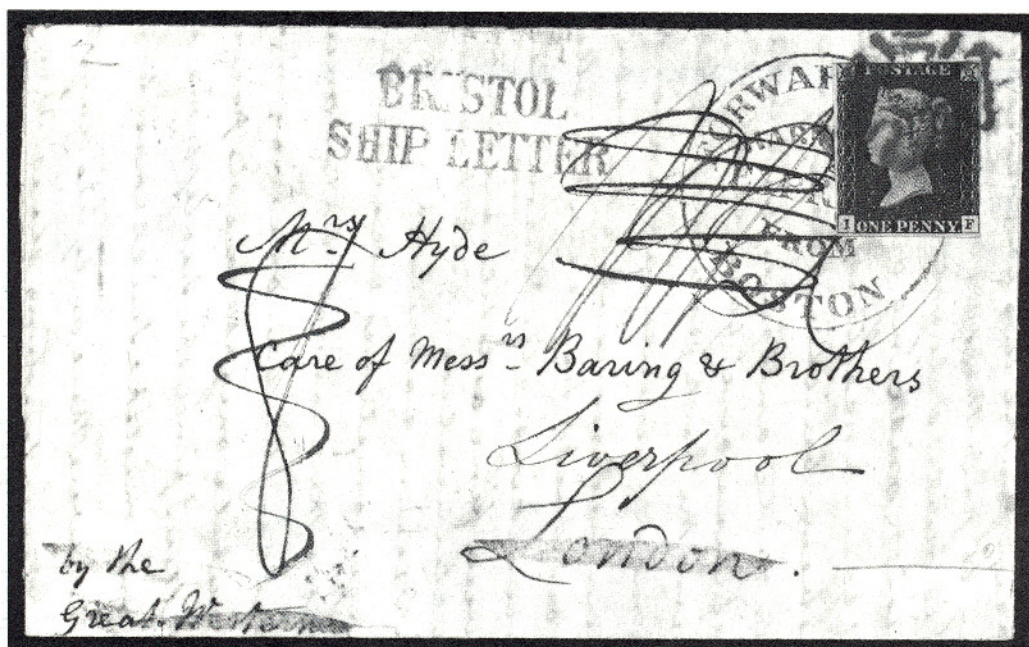 BRISTOL
SHIP LETTER
FORWAR
HARN
FROM
BOSTON
POSTAGE
I ONE PENNY F
Mrs Hyde
Care of Messrs Baring & Brothers
Liverpool
London.
by the
Great Western